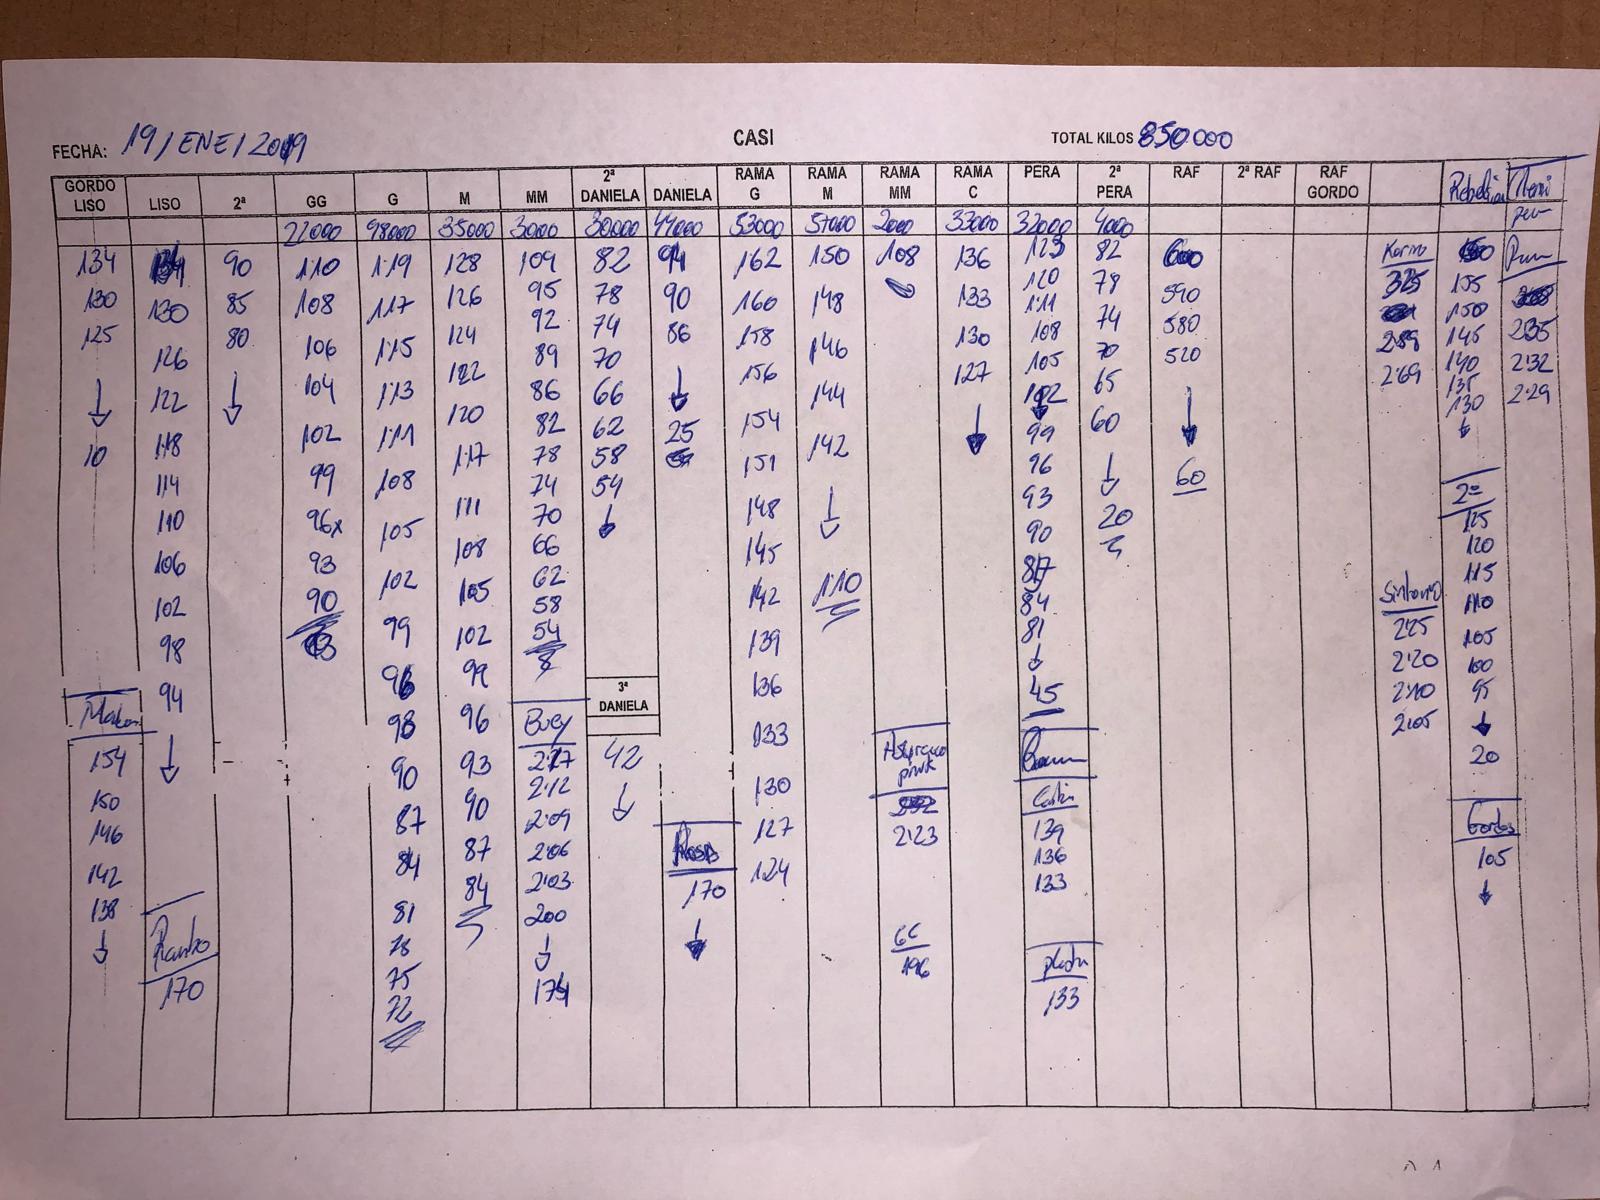 FECHA: 19/ENE/2019 CASI TOTAL KILOS 850.000
GORDO LISO LISO 2ª GG G M MM 2ª DANIELA DANIELA RAMA G RAMA M RAMA MM RAMA C PERA 2ª PERA RAF 2ª RAF RAF GORDO Rebelion
22000 98000 35000 3000 30000 44000 53000 57000 2000 33000 32000 4000
134
130
125
10
154
150
146
142
138
134
130
126
122
118
114
110
106
102
98
94
Rambo
170
90
85
80
110
108
106
104
102
99
96x
93
90
119
117
115
113
111
108
105
102
99
96
93
90
87
84
81
78
75
72
128
126
124
122
120
117
111
108
105
102
99
96
93
90
87
84
109
95
92
89
86
82
78
74
70
66
62
58
54
8
Buey
2'17
2'12
2'09
2'06
2'03
200
174
82
78
74
70
66
62
58
54
3ª
DANIELA
42
94
90
86
25
Rosa
170
162
160
158
156
154
151
148
145
142
139
136
133
130
127
124
150
148
146
144
142
110
108
2'23
GG
196
136
133
130
127
123
120
111
108
105
102
99
96
93
90
87
84
81
45
139
136
133
133
82
78
74
70
65
60
20
600
590
580
520
60
325
2'89
2'69
2'25
2'20
2'10
2'05
160
155
150
145
140
135
130
2ª
125
120
115
110
105
100
95
20
Gordos
105
2'35
2'32
2'29